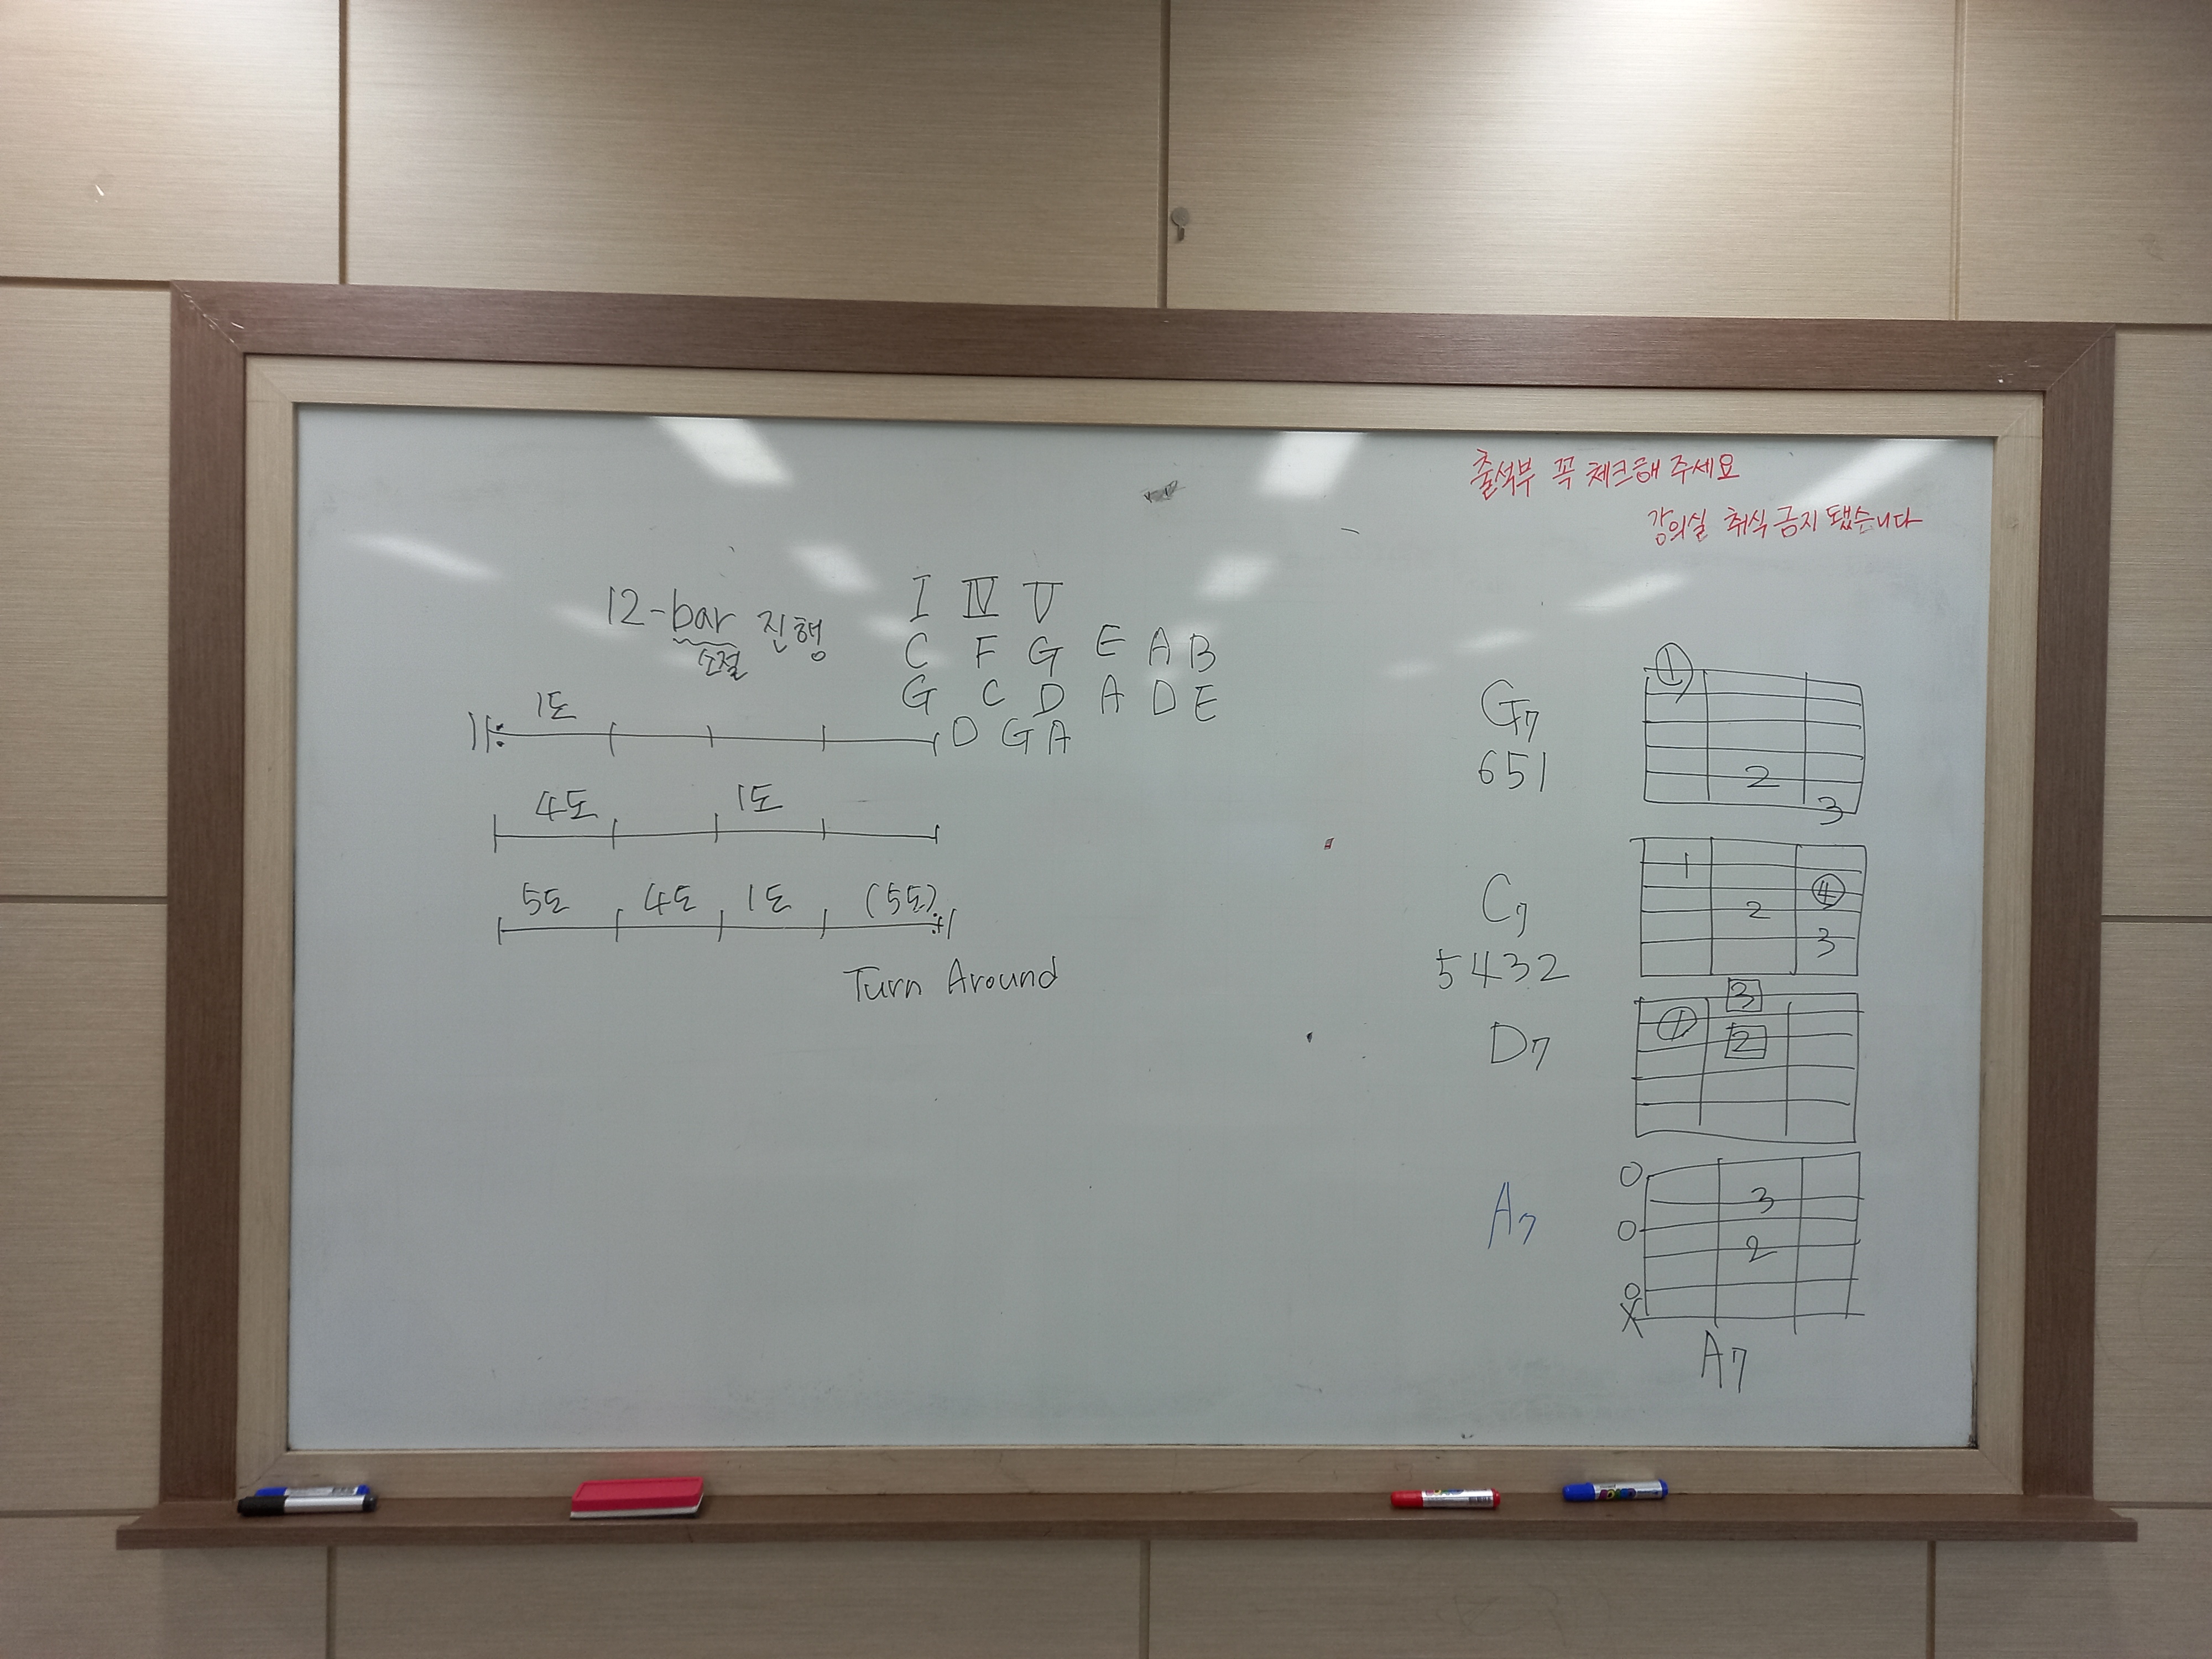 출석부 꼭 체크해 주세요
강의실 취식 금지 됐습니다
12-bar 진행
소절
I IV V
C F G E A B
G C D A D E
D G A
1도
4도 1도
5도 4도 1도 (5도)
Turn Around
G7
651
1
2
3
C7
5432
1
4
2
3
D7
3
1
2
A7
O
3
O
2
O
X
A7